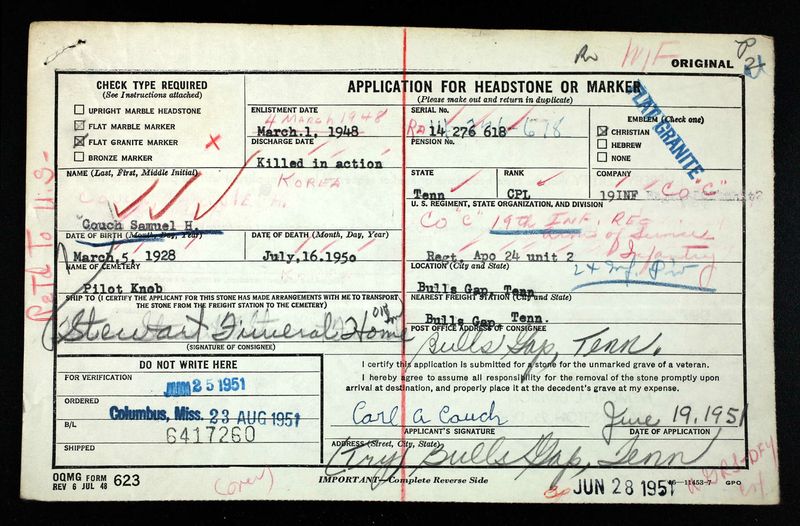 Rv W/F ORIGINAL
CHECK TYPE REQUIRED
(See Instructions attached)
UPRIGHT MARBLE HEADSTONE
FLAT MARBLE MARKER
FLAT GRANITE MARKER
BRONZE MARKER
APPLICATION FOR HEADSTONE OR MARKER
(Please make out and return in duplicate)
ENLISTMENT DATE
4 MARCH 1948
March.1, 1948
DISCHARGE DATE
Killed in action
KOREA
SERIAL No.
14 276 618
PENSION No.
EMBLEM (Check one)
CHRISTIAN
HEBREW
NONE
FLAT GRANITE
NAME (Last, First, Middle Initial)
Couch Samuel H.
STATE
Tenn
RANK
CPL
COMPANY
19INF CO "C"
U. S. REGIMENT, STATE ORGANIZATION, AND DIVISION
CO "C" 19th INF. REG
Arms of Service
Infantry
Regt, Apo 24 unit 2
DATE OF BIRTH (Month, Day, Year)
March,5, 1928
DATE OF DEATH (Month, Day, Year)
July,16.1950
NAME OF CEMETERY
Pilot Knob
LOCATION (City and State)
Bulls Gap, Tenn
SHIP TO (I CERTIFY THE APPLICANT FOR THIS STONE HAS MADE ARRANGEMENTS WITH ME TO TRANSPORT
THE STONE FROM THE FREIGHT STATION TO THE CEMETERY)
Stewart Funeral Home
(SIGNATURE OF CONSIGNEE)
NEAREST FREIGHT STATION (City and State)
Bulls Gap, Tenn.
POST OFFICE ADDRESS OF CONSIGNEE
Bulls Gap, Tenn.
DO NOT WRITE HERE
FOR VERIFICATION
JUN 25 1951
ORDERED
Columbus, Miss. 23 AUG 1951
B/L
6417260
SHIPPED
I certify this application is submitted for a stone for the unmarked grave of a veteran.
I hereby agree to assume all responsibility for the removal of the stone promptly upon
arrival at destination, and properly place it at the decedent's grave at my expense.
Carl A Couch June 19, 1951
APPLICANT'S SIGNATURE DATE OF APPLICATION
ADDRESS (Street, City, State)
Bulls Gap, Tenn
OQMG FORM 623
REV 6 JUL 48
(over)
IMPORTANT—Complete Reverse Side
JUN 28 1951
16—11453-7 GPO
Ret'd To U.S-